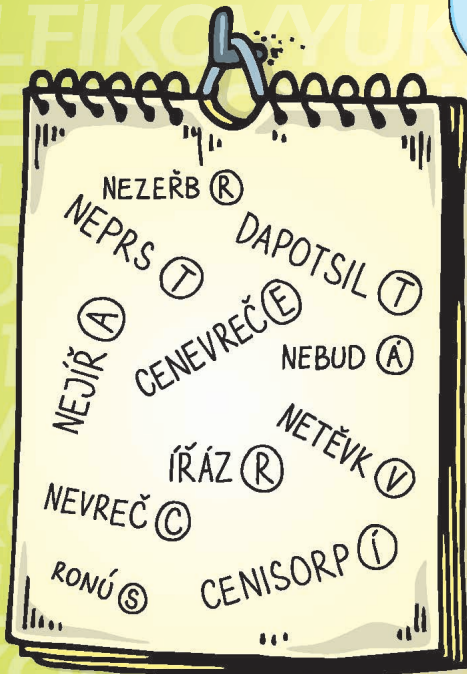 NEZEŘB R
NEPRS T
DAPOTSIL T
NEJÍŘ A
CENEVREČ E
NEBUD Á
NETĚVK V
ÍŘÁZ R
NEVREČ C
RONÚ S
CENISORP Í